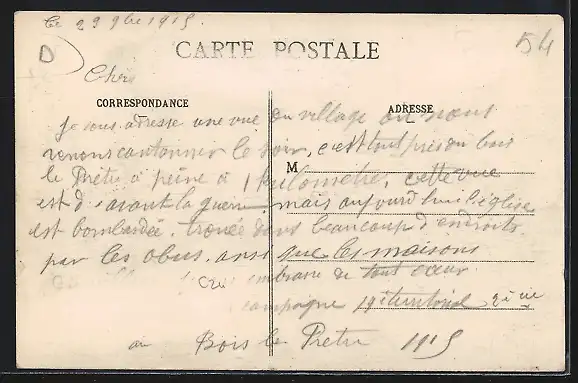 le 29 9bre 1915.
D
54
CARTE POSTALE
Chers
CORRESPONDANCE
ADRESSE
je vous adresse une vue du village où nous
venons cantonner le soir, c'est tout près du bois
M
le Prêtre à peine à 1 kilomètre, cette vue
est d'avant la guerre mais aujourd'hui l'église
est bombardée, trouée dans beaucoup d'endroits
par les obus, ainsi que les maisons
embrasse de tout cœur
campagne 19 territorial 2ième
au Bois le Pretre 1915